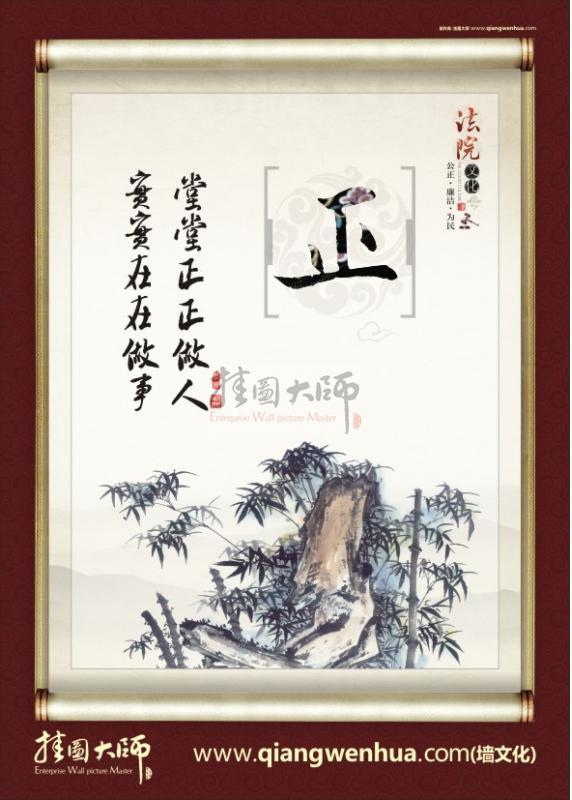 制作商:挂图大师:www.qiangwenhua.com
法院
文化
公正·廉洁·为民
正
堂堂正正做人
实实在在做事
挂图大师
Enterprise Wall picture Master
挂图大师
Enterprise Wall picture Master
www.qiangwenhua.com(墙文化)